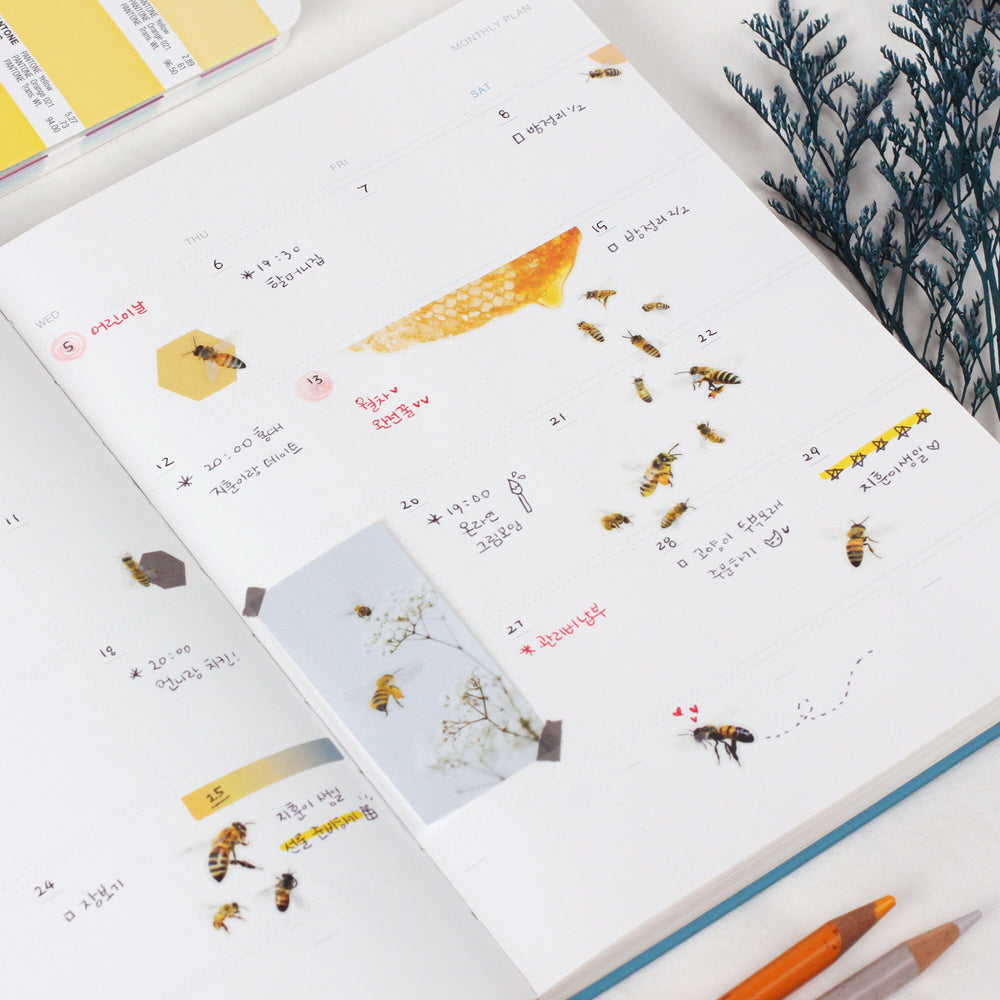 PANTONE Yellow
PANTONE Orange 021
PANTONE Trans. Wt.
2.89
.61
96.50
PANTONE Yellow
PANTONE Orange 021
PANTONE Trans. Wt.
5.27
.73
94.00
MONTHLY PLAN
WED
THU
FRI
SAT
5 어린이날
6
*19:30
할머니집
7
8
방정리 1/2
11
12
*20:00 홍대
지훈이랑 데이트
13
월차♥
완전꿀♥♥
15
방정리 2/2
18
*20:00
언니랑 치킨!
20
*19:00
온라인
그림모임
21
22
24
장보기
25
지훈이 생일
선물 준비하기
27
*관리비납부
28
고양이 두부모래
주문하기
29
지훈이생일♡